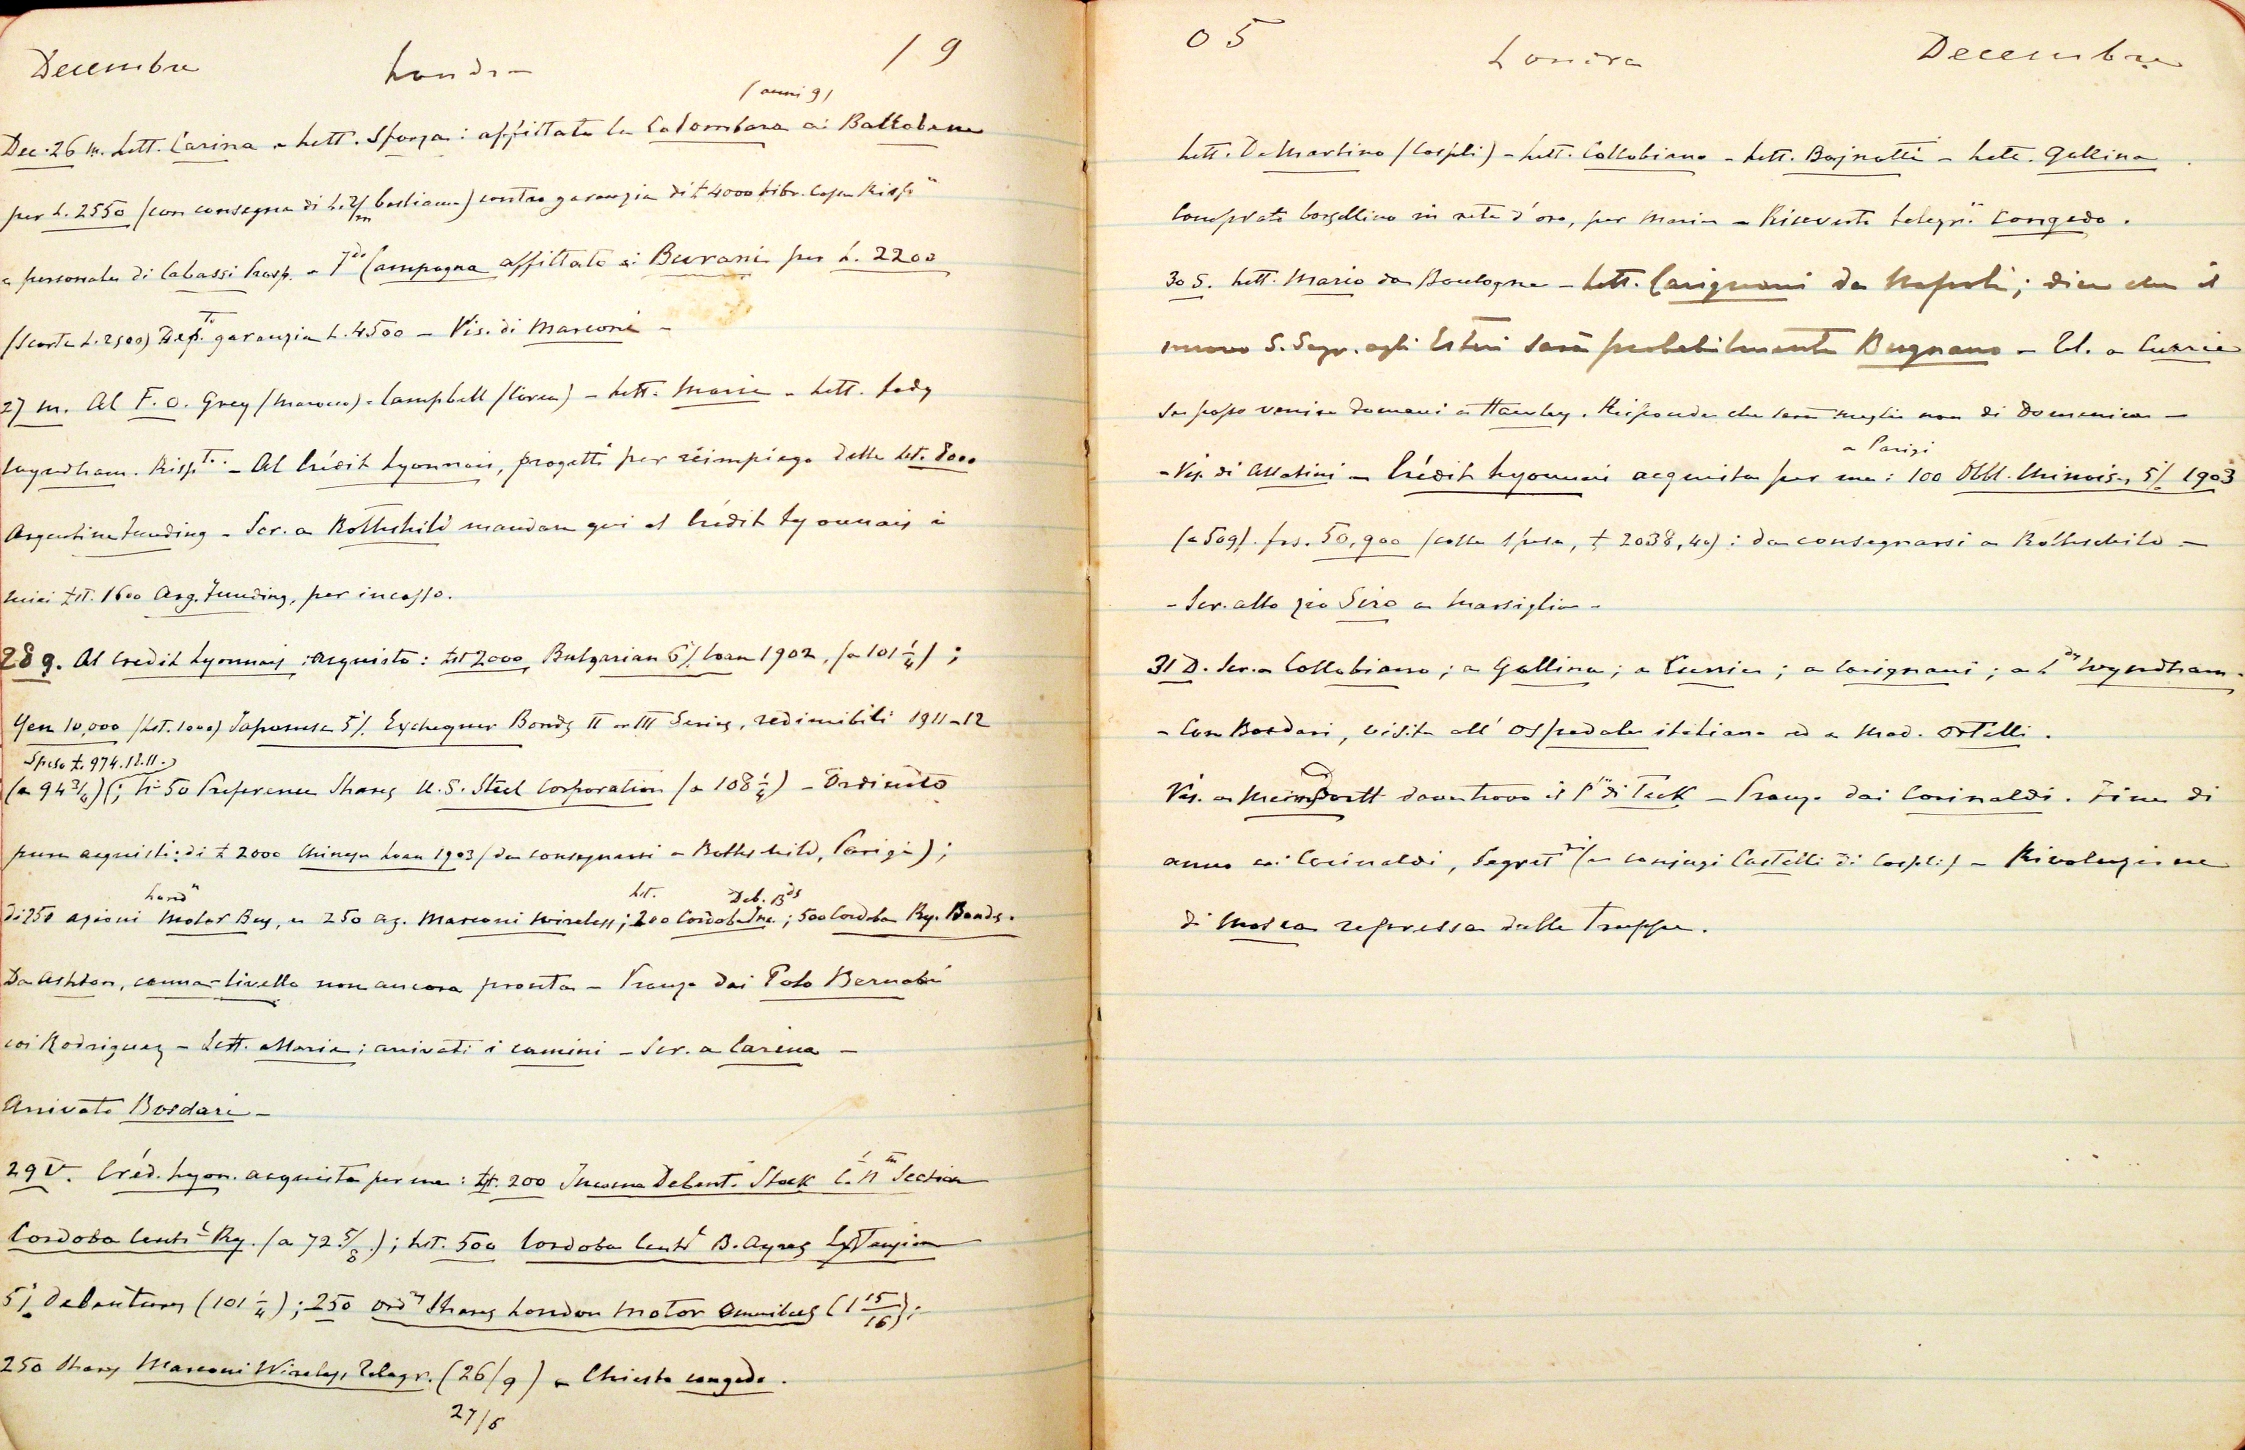 Decembre Londra 19
(anni 9)
Dec. 26 m. Lett. Carina - Lett. Sforza: affittata la Colombara ai Ballabene
per L. 2550 (con consegna di L. 2/m bestiame) contro garanzia di £ 4000 libr. Cassa Rispo
e personale di Cabassi Prosp. - Campagna affittata ai Burani per L. 2200
(Scorte L. 2500) Dep.to garanzia L. 4500 - Vis. di Marconi -
27 m. Al F.O. Grey (Marocco) - Campbell - Lett. Maria - Lett. Lady
Wyndham. Risp.to - Al Crédit Lyonnais, progetti per reimpiego delle Lst. 8000
Argentine Funding - Scr. a Rothschild mandare qui al Crédit Lyonnais i
miei Lst. 1600 Arg. Funding, per incasso.
28 g. Al Credit Lyonnais: acquisto: Lst 2000 Bulgarian 6% Loan 1902, (a 101 1/4);
Yen 10,000 (Lst. 1000) Japanese 5% Exchequer Bonds II or III Series, redimibili 1911-12
Speso £. 974.12.11.
(a 94 3/4); 50 Preference Shares U.S. Steel Corporation (a 108 1/4) - Ordinato
pure acquisti: di £ 2000 Chinese Loan 1903 (da consegnarsi a Rothschild, Parigi);
Lond.n Lst. Deb. Bds
di 250 azioni Motor Bus, e 250 az. Marconi Wireless; 200 Cordoba Inc.; 500 Cordoba Ry. Bonds.
Da Ashton, canna-livello non ancora pronta - Pranzo dai Polo Bernabé
coi Rodriguez - Lett. a Maria; arrivati i camini - Scr. a Carina -
Arrivato Bordari -
29 V. Créd. Lyon. acquista per me: Lst. 200 Income Debent. Stock C.l N.rn Section
Cordoba Centr.l Ry. (a 72 5/8); Lst. 500 Cordoba Centr.l B. Ayres Extension
5% Debentures (101 1/4); 250 Ord.y Shares London Motor Omnibus (1 15/16);
250 Shares Marconi Wireless Telegr. (26/9) - Chiesto congedo.
27/6
05 Londra Decembre
Lett. De Martino (Cospli) - Lett. Collobiano - Lett. Bajnotti - Lett. Gallina
Comprato borsellino in rete d'oro, per Maria - Ricevuto telegr.o congedo.
30 S. Lett. Mario da Boulogne - Lett. Carignani da Napoli; dice che il
nuovo S. Segr. agli Esteri sarà probabilmente Bugnano - Tel. a Currie
se posso venire domani a Hawley. Risponde che sarà meglio non di Domenica -
a Parigi
- Vis. di Allatini - Crédit Lyonnais acquista per me: 100 Obbl. Chinoises 5% 1903
(a 509) frs. 50,900 (colle spese, £ 2038,40): da consegnarsi a Rothschild -
- Scr. allo zio Siro a Marsiglia -
31 D. Scr. a Collobiano; a Gallina; a Currie; a Carignani; a L.dy Wyndham.
- Con Bordari, visita all' Ospedale italiano ed a Mad. Ortelli.
Vis. a dove trovo il P.pe di Teck - Pranzo dai Corinaldi. Fine di
anno coi Corinaldi, (e conjugi Castelli di Cospli) - Rivoluzione
di Mosca repressa dalle truppe.